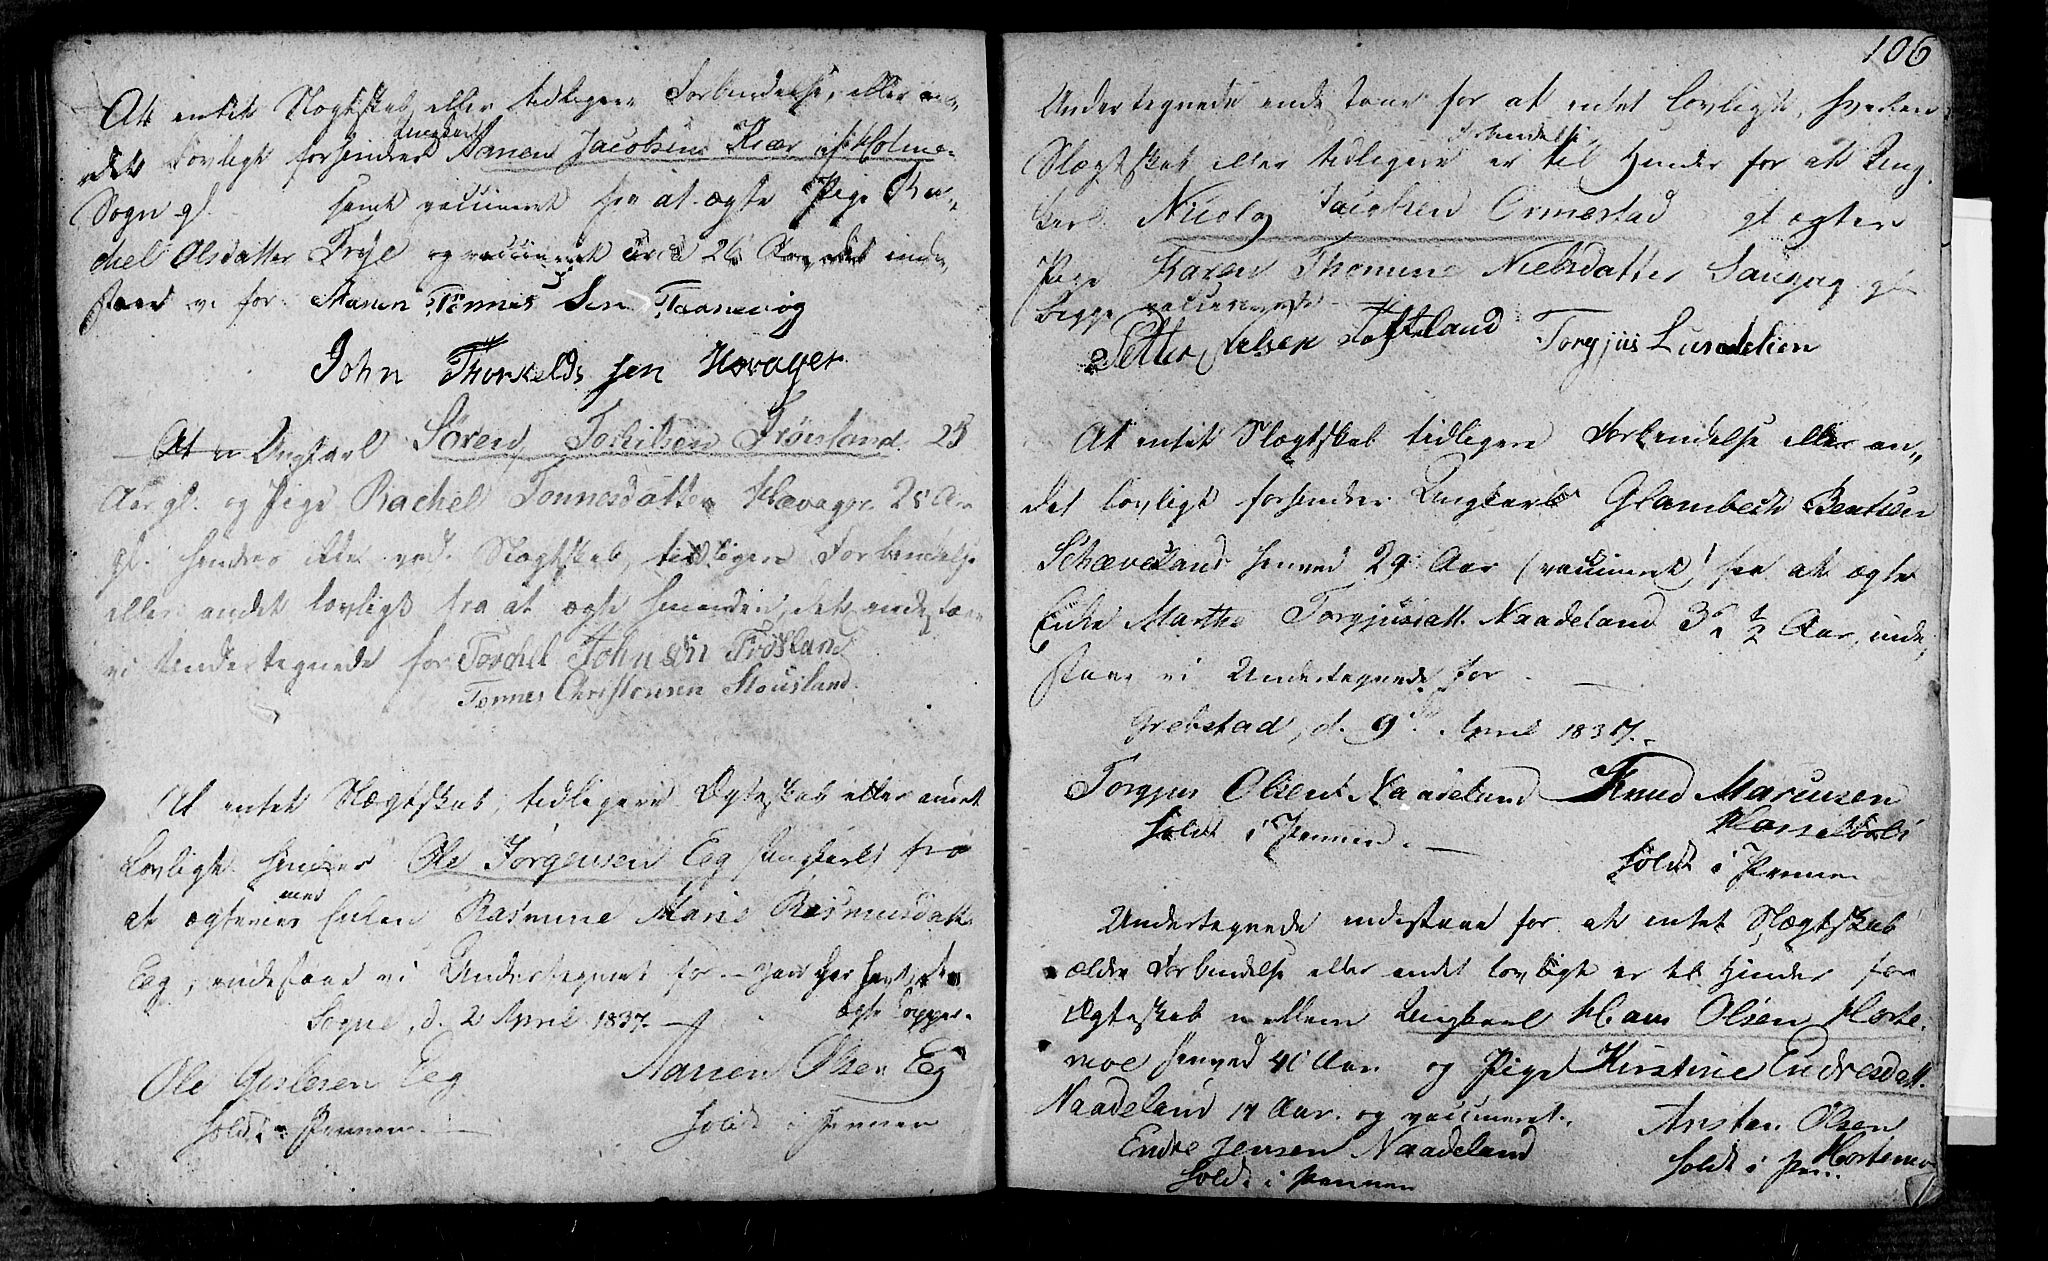 At intet Slægtskab eller tidligere Forbindelse, eller an-
det Lovligt forhindrer Ungkarl Aanen Jacobsen Kiær af Holme-
Sogn gl. samt vaccineret fra at ægte Pige Ra-
chel Olsdatter Trye og vaccineret 26 Aar inde
staae vi for Aanen Tønnes Sen Taanevig
John Thorkelds sen Hovager
Ungkarl Søren Torkilsen Frøisland 25
Aar gl. og Pige Rachel Tønnesdatter Hævager 25 Aar
gl. hindres ikke ved Slægtskab, tidligere Forbindelse
eller andet lovligt fra at ægte hinanden, det indestaae
vi Undertegnede for Torchel Johnsen Frøsland
Tønnes Christensen Stousland
At intet Slægtskab, tidligere Ægteskab eller andet
Lovligt hindrer Ole Jørgensen Eeg Ungkarl fra
at ægte med Enken Rasmine Marie Rasmusdatt.
Eeg, indestaae vi Undertegnet for – han har havt de
ægte Kopper.
Sogne, d. 2 April 1837.
Ole Gislesen Eeg Aanen Olsen Eeg
holdt i Pennen. holdt i Pennen
106
Undertegnede indestaae for at intet lovligt, hverken
Slægtskab eller tidligere Forbindelse er til Hinder for at Ung-
karl Nicolay Jacobsen Ormestad gl ægter
Pige Karen Thomine Nielsdatter gl
begge vaccinerede
Petter Nelsen Toftland Torgjus Lundelien
At intet Slægtskab tidligere Forbindelse eller an-
det lovligt forhindrer Ungkarl Glambech Bentsen
Schævesland henved 29 Aar (vaccineret) fra at ægte
Enke Marthe Torgjusdatt. Naadeland 36 ½ Aar, inde
staae vi Undertegnede for.
Grebstad, d. 9de April 1837.
Torgjus Olsen Naadeland Knud Marcusen
holdt i Pennen. Hasselvols
holdt i Pennen
Undertegnede indestaae for at intet Slægtskab
ældre Forbindelse eller andet lovligt er til Hinder for
Ægteskab mellem Ungkarl Hans Olsen Horte-
moe henved 40 Aar og Pige Kirstine Endresdatt.
Naadeland 17 Aar. og vaccineret. Anstan Olsen
Endre Jensen Naadeland Hortemo
holdt i Pennen holdt i Pen.